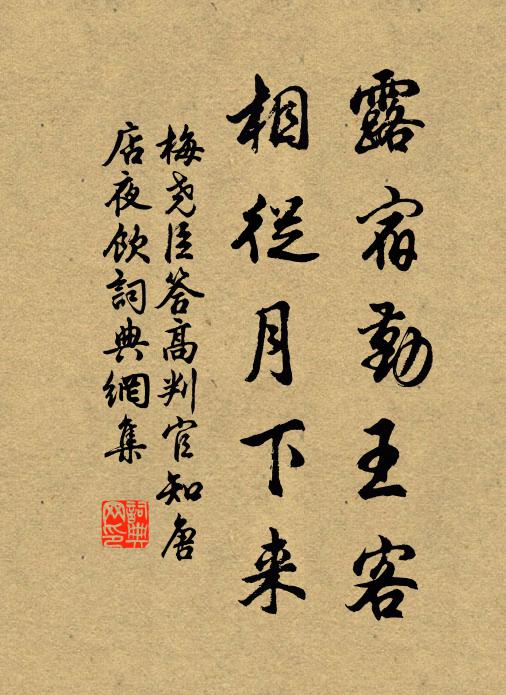 露宿勤王客
相從月下来
梅尧臣答高判官知唐
店夜飲詞典網集
詞典
网印